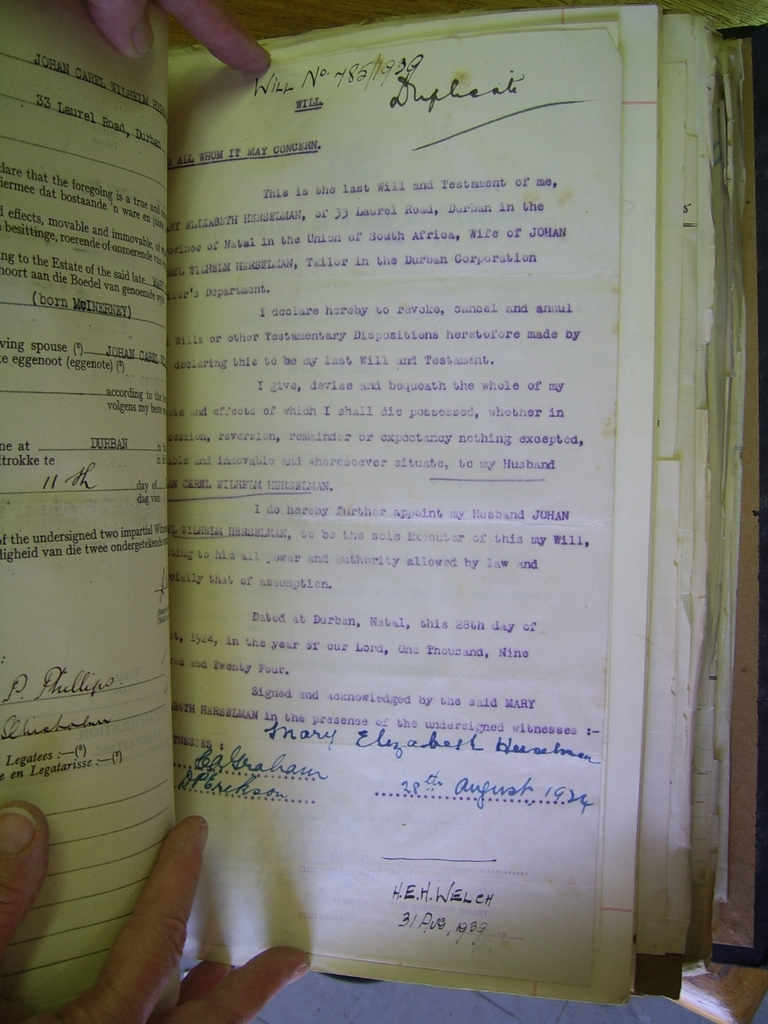 JOHAN CAREL WILHELM
33 Laurel Road, Durban
lare that the foregoing is a true and
iermee dat bostaande 'n ware en
d effects, movable and immovable, of
besittinge, roerende of onroerende van
ing to the Estate of the said late
hoort aan die Boedel van genoemde
(born McINERNEY)
ving spouse (⁵) JOHAN CAREL
te eggenoot (eggenote) (⁵)
according to the
volgens my beste
ne at DURBAN
ltrokke te
11th day of
dag van
of the undersigned two impartial
ligheid van die twee ondergetekende
P. Phillips
Chisholm
Legatees :—(⁶)
e en Legatarisse :—(⁷)
WILL No. 785/1939
Duplicate
WILL.
ALL WHOM IT MAY CONCERN.
This is the last Will and Testament of me,
RY ELIZABETH HERSELMAN, of 33 Laurel Road, Durban in the
ovince of Natal in the Union of South Africa, Wife of JOHAN
EL WILHELM HERSELMAN, Tailor in the Durban Corporation
's Department.
I declare hereby to revoke, cancel and annul
Wills or other Testamentary Dispositions heretofore made by
declaring this to be my last Will and Testament.
I give, devise and bequeath the whole of my
and effects of which I shall die possessed, whether in
ession, reversion, remainder or expectancy nothing excepted,
able and immovable and wheresoever situate, to my Husband
AN CAREL WILHELM HERSELMAN.
I do hereby further appoint my Husband JOHAN
L WILHELM HERSELMAN, to be the sole Executor of this my Will,
ing to him all power and authority allowed by law and
cially that of assumption.
Dated at Durban, Natal, this 28th day of
st, 1924, in the year of our Lord, One Thousand, Nine
red and Twenty Four.
Signed and acknowledged by the said MARY
BETH HERSELMAN in the presence of the undersigned witnesses :-
Mary Elizabeth Herselman
TNESSES :
Graham
D P Erikson
28th August 1924
H.E.H. WELCH
31 Aug, 1939